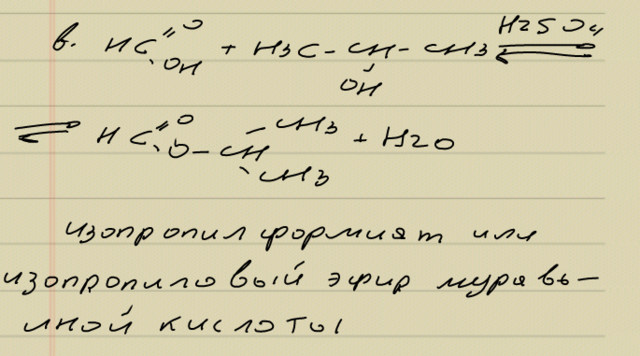 в. HC=O + H3C-CH-CH3 H2SO4 ⇌
OH OH
⇌ HC=O CH3 + H2O
O-CH
CH3
изопропилформиат или
изопропиловый эфир муравь-
иной кислоты